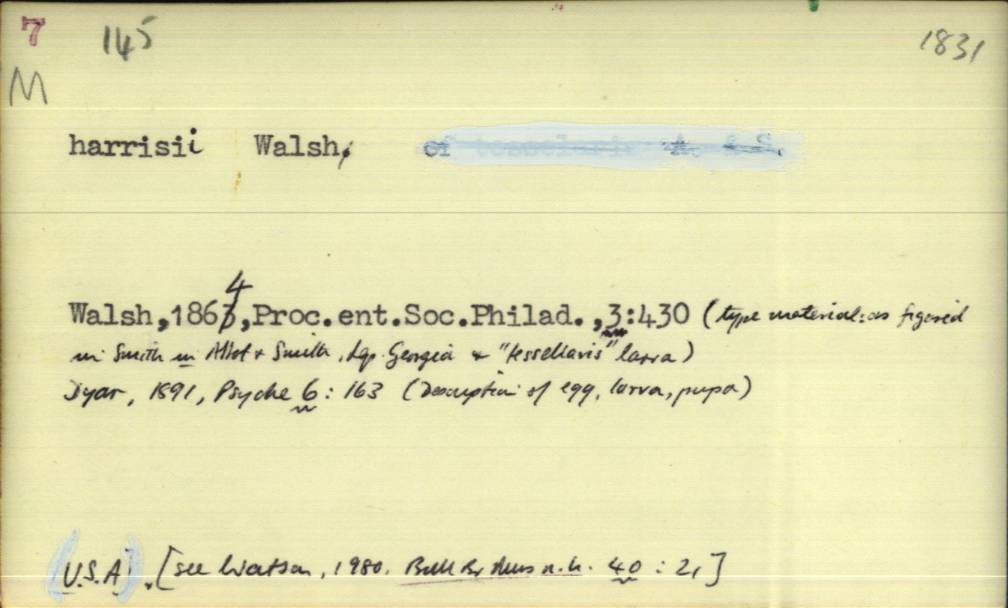 7 145 1831
M
harrisii Walsh, of tesselaris A. & S.
Walsh,18634,Proc.ent.Soc.Philad.,3:430 (type material: as figured
in Smith in Abbot & Smith, Lep. Georgia & "tessellaris" larva)
Dyar, 1891, Psyche 6: 163 (Description of egg, larva, pupa)
(U.S.A). [see Watson, 1980. Bull Br. Mus n.h. 40 : 21]